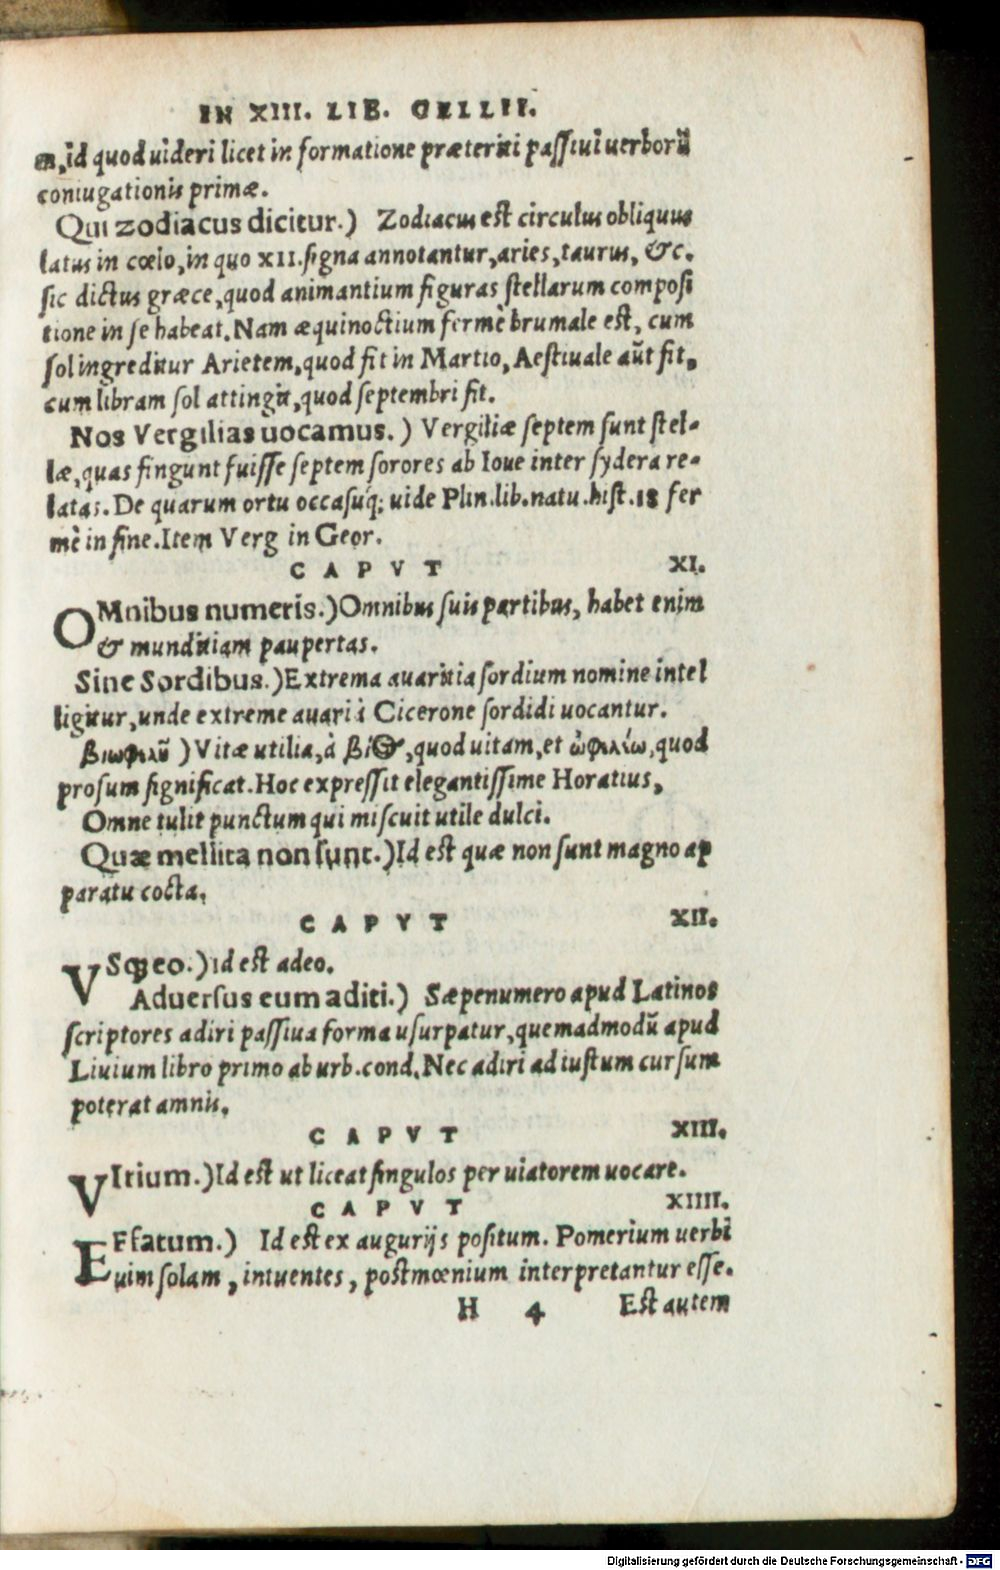 IN XIII. LIB. GELLII.
m, id quod uideri licet in formatione præteriti passiui uerborũ
coniugationis primæ.
Qui zodiacus dicitur.) Zodiacus est circulus obliquus
latus in cœlo, in quo XII. signa annotantur, aries, taurus, &c.
sic dictus græce, quod animantium figuras stellarum composi
tione in se habeat. Nam æquinoctium fermè brumale est, cum
sol ingreditur Arietem, quod fit in Martio, Aestiuale aũt fit,
cum libram sol attingit, quod septembri fit.
Nos Vergilias uocamus.) Vergiliæ septem sunt stel-
læ, quas fingunt fuisse septem sorores ab Ioue inter sydera re-
latas. De quarum ortu occasuq́; uide Plin. lib. natu. hist. 18 fer
mè in fine. Item Verg in Geor.
CAPVT XI.
OMnibus numeris.) Omnibus suis partibus, habet enim
& munditiam paupertas.
Sine Sordibus.) Extrema auaritia sordium nomine intel
ligitur, unde extreme auari à Cicerone sordidi uocantur.
βιωφιλῦ) Vitæ utilia, à βίος, quod uitam, et ὠφιλέω, quod
prosum significat. Hoc expressit elegantissime Horatius,
Omne tulit punctum qui miscuit utile dulci.
Quæ mellita non sunt.) Id est quæ non sunt magno ap
paratu cocta.
CAPVT XII.
VSqȝ eo.) id est adeo.
Aduersus eum aditi.) Sæpenumero apud Latinos
scriptores adiri passiua forma usurpatur, quemadmodũ apud
Liuium libro primo ab urb. cond. Nec adiri ad iustum cursum
poterat amnis.
CAPVT XIII.
VItium.) Id est ut liceat singulos per uiatorem uocare.
CAPVT XIIII.
EFfatum.) Id est ex augurijs positum. Pomerium uerbi
uim solam, intuentes, postmœnium interpretantur esse.
H 4 Est autem
Digitalisierung gefördert durch die Deutsche Forschungsgemeinschaft - DFG